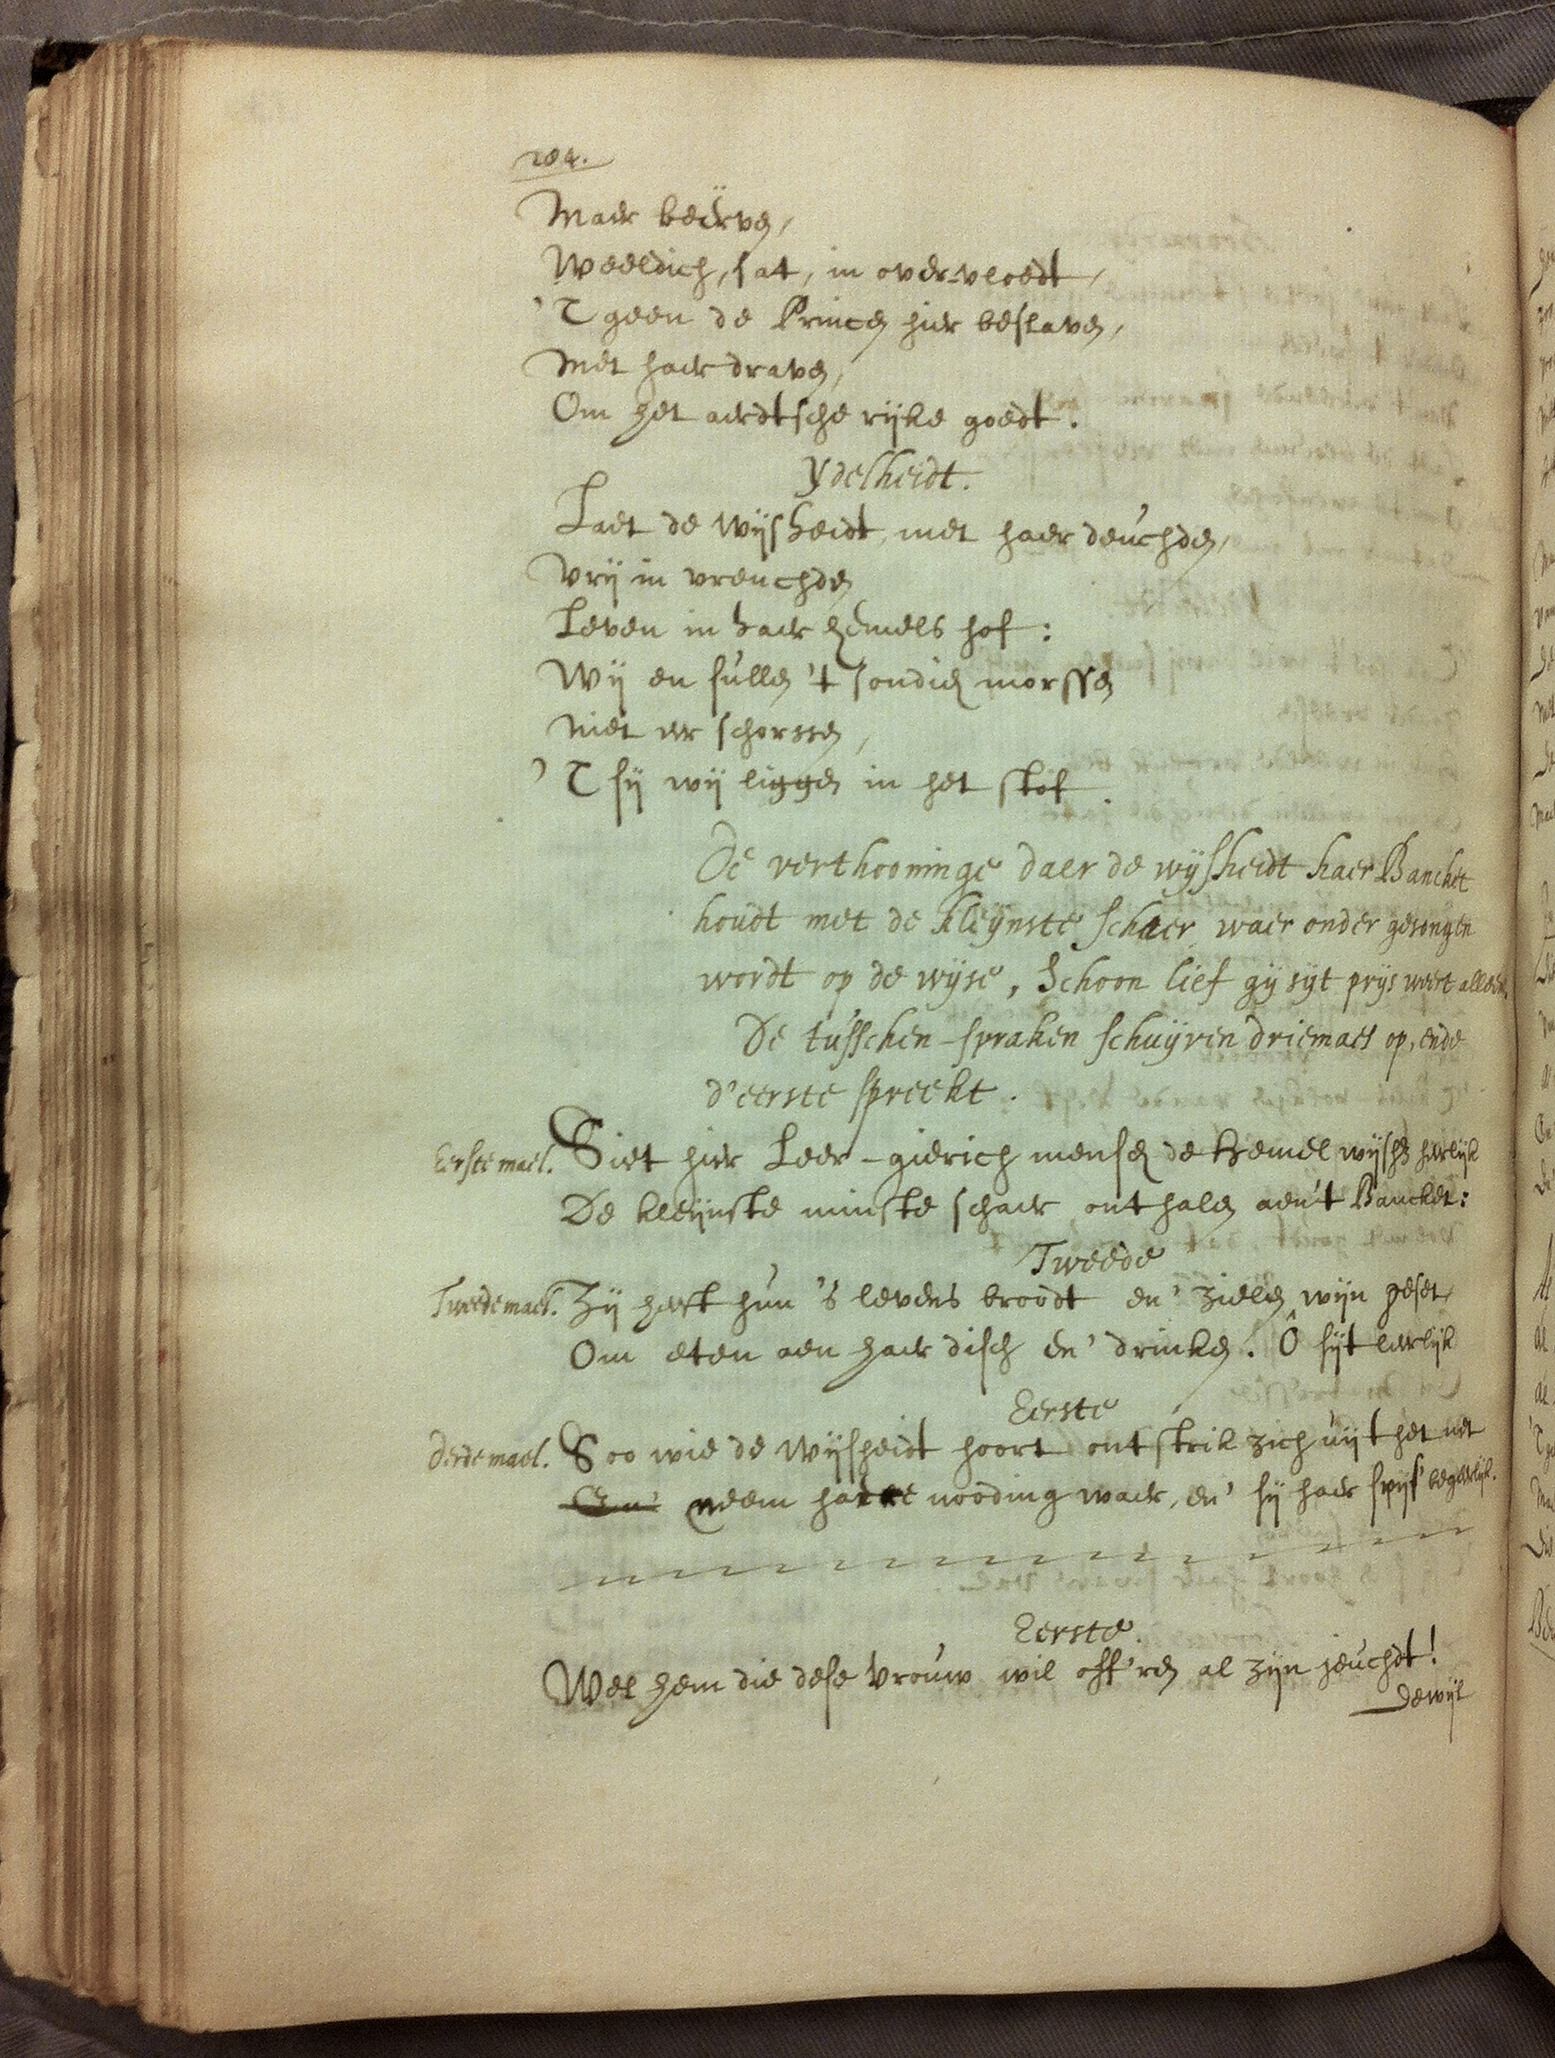 204.
Maer beërven,
Weeldich, sat, in over-vloedt,
'T geen de Princen hier beslaven,
Met haer draven,
Om het aerdtsche rijke goedt.
Ydelheidt.
Laet de Wijsheidt, met haer deuchden,
Vrij in vreuchden
Leven in haer hemels hof:
Wij en sullen 't sondich morssen
Niet er schorssen,
'T sij wij liggen in het stof.
De verthooninge daer de wijsheidt haer Banchet
houdt met de kleijnste schaer, waer onder gesongen
wordt op de wijse, Schoon lief gij sijt prijs weert alleen.
De tusschen-spraken schuijven driemael op, ende
d'eerste spreekt.
Eerste mael. Siet hier Leer-gierich mensch de hemel wijsh. heerlijk
De kleijnste minste schaer onthalen aen't Bancket:
Tweede
Tweede mael. Zij heeft hun 's levens broodt en' zielen wijn geset,
Om eten aen haer disch en' drinken. Ô sijt leerlijk
Eerste
Derde mael. Soo wie de Wijsheidt hoort ontstrik zich uijt het net
En' neem haere nooding waer, en' sij haer spijs' begeerlijk.
Eerste.
Wel hem die dese Vrouw wil off'ren al zijn jeuchdt!
Dewijl